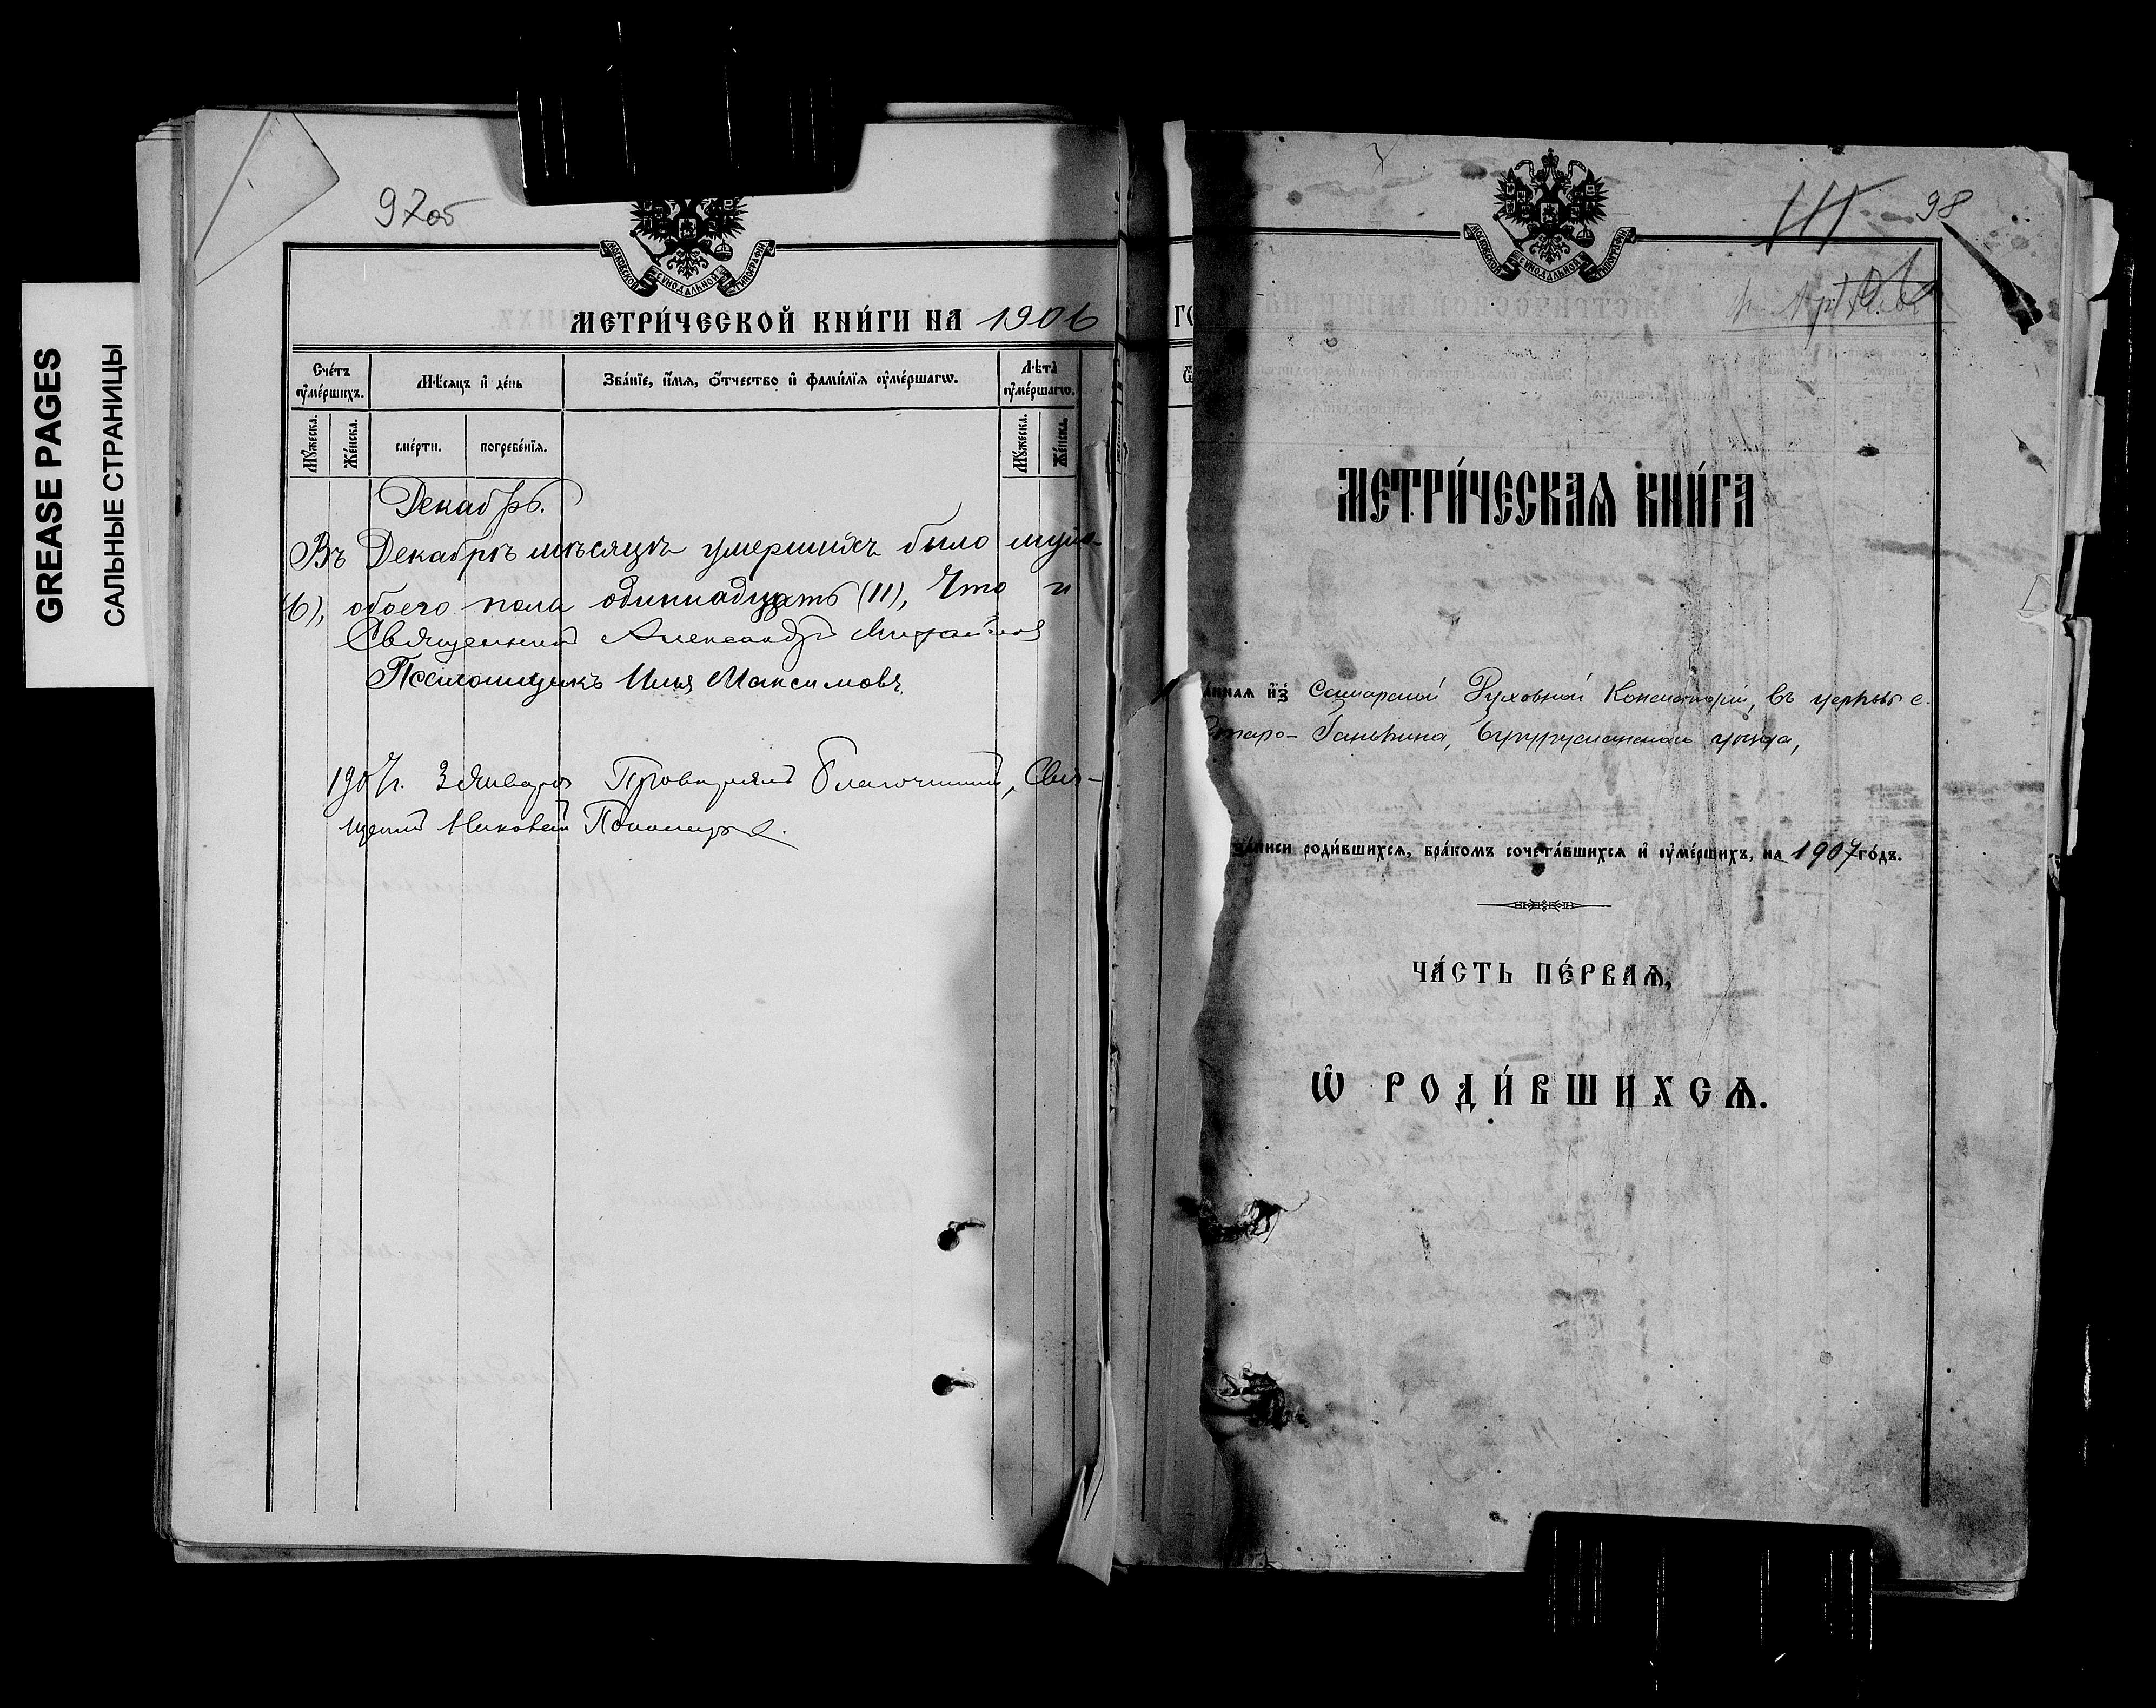 GREASE PAGES
САЛЬНЫЕ СТРАНИЦЫ
97об
МОСКОВСКОЙ СѴНОДАЛЬНОЙ ТИПОГРАФІИ
МЕТРИ́ЧЕСКОЙ КНИ́ГИ НА 1906
Сче́тъ ᲂу҆ме́ршихъ.
Мѣ́сяцъ и҆ де́нь
Зва́нїе, и҆́мѧ, ѻ҆́тчество и҆ фами́лїѧ ᲂу҆ме́ршагѡ.
Лѣ́та ᲂу҆ме́ршагѡ.
Мꙋ́жеска.
Же́нска.
сме́рти.
погребе́нїѧ.
Мꙋ́жеска.
Же́нска.
Декабрь.
Въ Декабрѣ мѣсяцѣ умершихъ было муже-
6), обоего пола одиннадцать (11), Что и
Священникъ Александръ Михайлов
Псаломщикъ Илья Максимовъ.
1907 г. 3 Января Провѣрялъ Благочинный, Свя-
щенникъ
ГО
98
МОСКОВСКОЙ СѴНОДАЛЬНОЙ ТИПОГРАФІИ
МЕТРИ́ЧЕСКАѦ КНИ́ГА
а́ннаѧ и҆з̾ Самарской Духовной Консисторіи, въ церковь с.
Старо-Ганькина, Бугурусланскаго уѣзда,
за́писи роди́вшихсѧ, бра́комъ сочета́вшихсѧ и҆ ᲂу҆ме́ршихъ, на 1907 го́дъ.
ЧА́СТЬ ПЕ́РВАѦ,
Ѽ РОДИ́ВШИХСѦ.